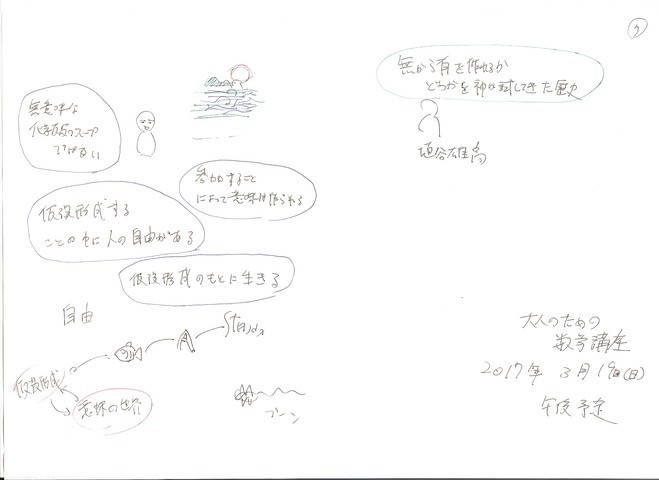 7
無意味な
化学反応のスープ
ではない
参加すること
によって意味は作られる
仮設形成する
ことの中に人の自由がある
仮設形成のもとに生きる
自由
仮設形成
意味の世界
ブーン
無から有を作れるか
どうかを神が試してきた歴史
埴谷雄高
大人のための
数学講座
2017年 3月19日(日)
午後予定